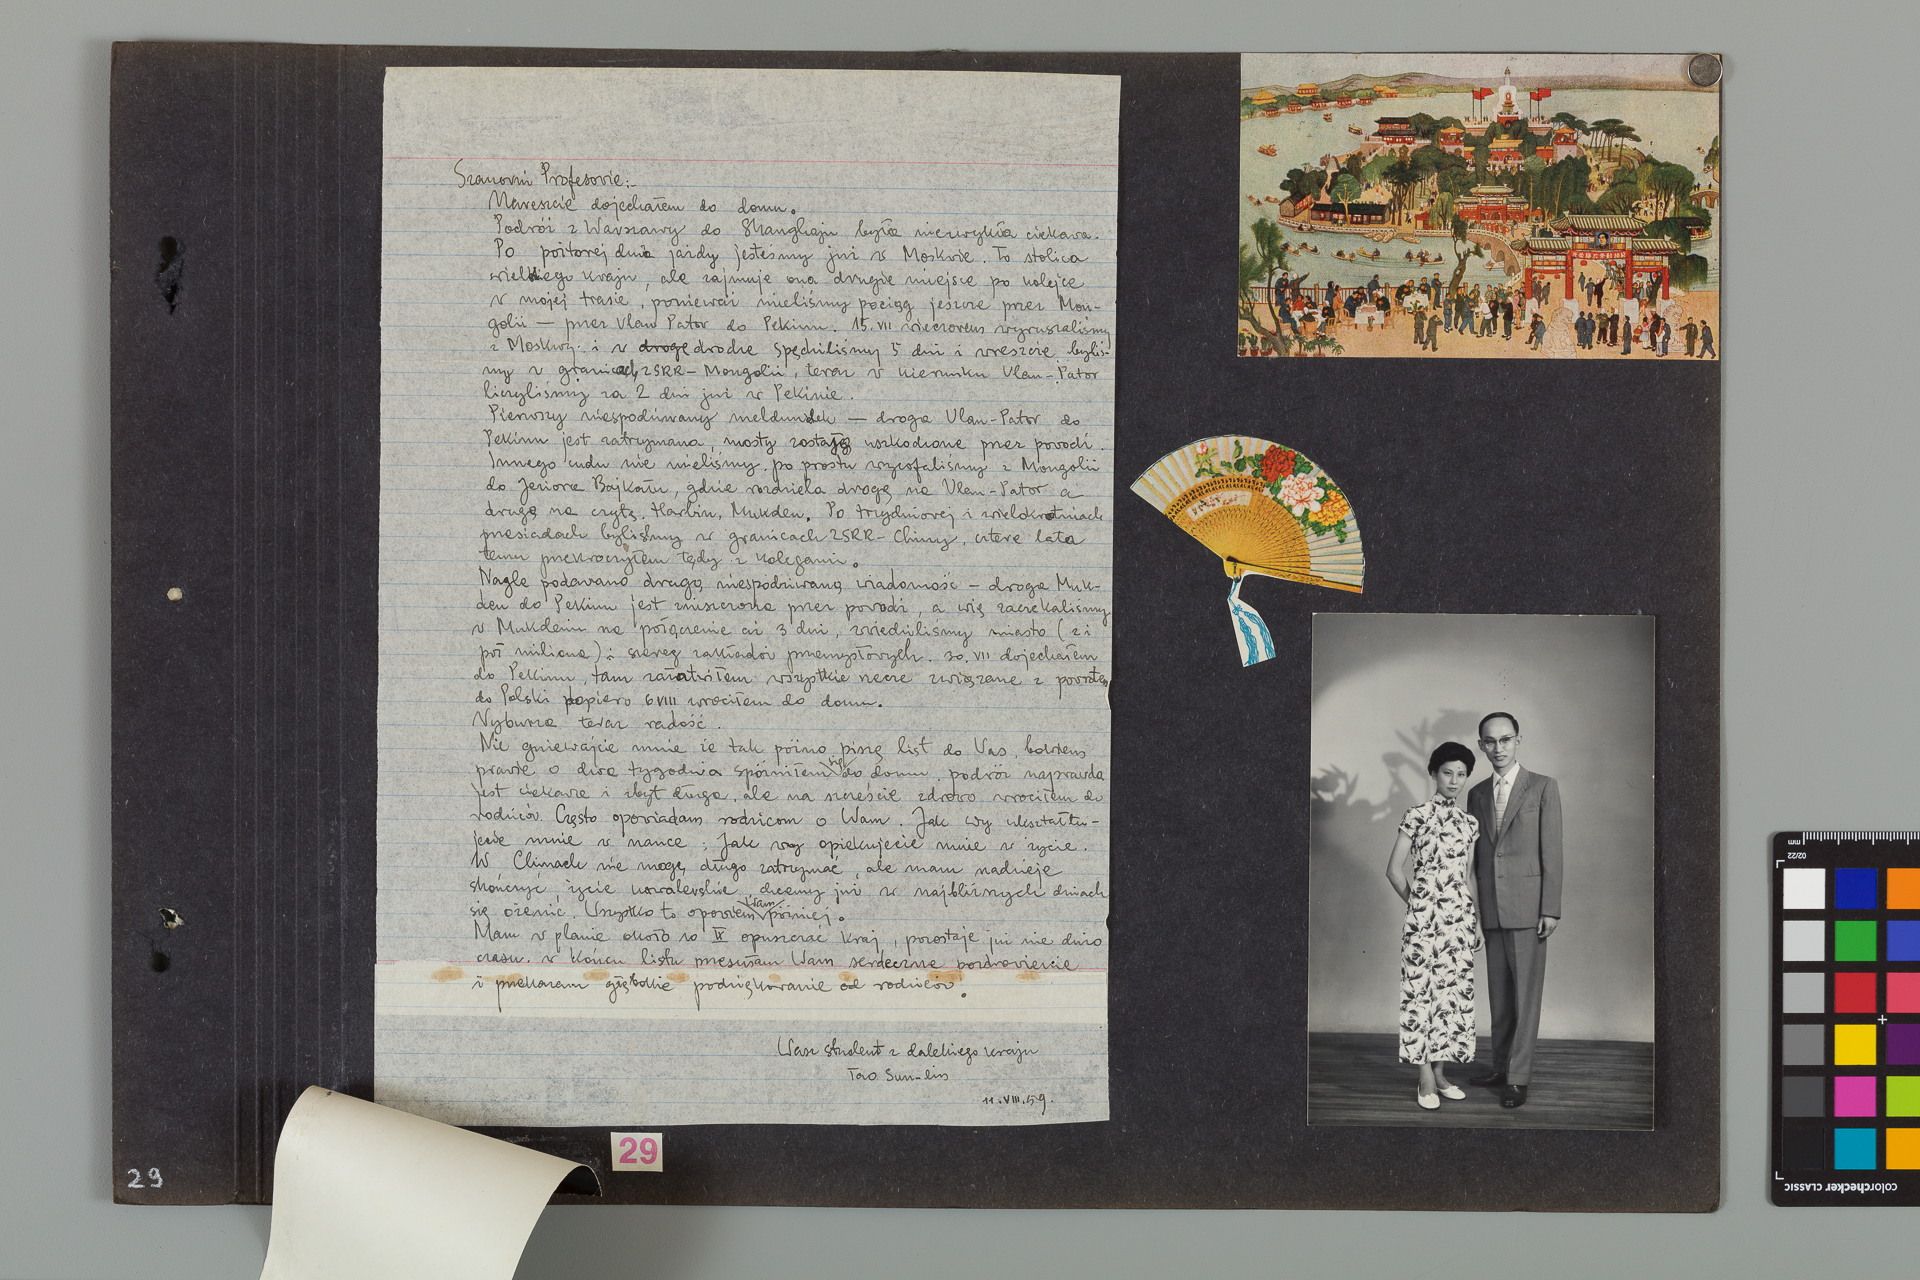 Szanowni Profesorie:-
Nareszcie dojechałem do domu.
Podróż z Warszawy do Shanghaju była niezwykła ciekawa.
Po półtorej dnia jazdy jesteśmy już w Moskwie. To stolica
wielkiego kraju, ale zajmuje ona drugie miejsce po kolejce
w mojej trasie, ponieważ mieliśmy pociąg jeszcze przez Mon-
golii — przez Ulan Pator do Pekinu. 15.VII wieczorem wyruszaliśmy
z Moskwy i w drogę drodze spędziliśmy 5 dni i wreszcie byliś-
my w granicach ZSRR- Mongolii, teraz w kierunku Ulan-Pator
liczyliśmy za 2 dni już w Pekinie.
Pierwszy niespodziwany meldunek — droga Ulan-Pator do
Pekinu jest zatrzymana, mosty zostają uszkodzone przez powodzi.
Innego cudu nie mieliśmy. po prostu wycofaliśmy z Mongolii
do Jeziora Bajkału, gdzie rozdziela drogę na Ulan-Pator a
drugą na czytę. Harbin, Mukden. Po trzydniowej i wielokrotniach
przesiadach byliśmy w granicach ZSRR- Chiny, cztere lata
temu przekroczyłem tędy z kolegami.
Nagle podavano drugą niespodziwaną wiadomość — droga Muk-
den do Pekinu jest zniszczona przez powodzi, a więc zaczekaliśmy
w Mukdeniu na połączenie aż 3 dni, zwiedziliśmy miasto (2 i
pół miliona) i szereg zakładów przemysłowych. 30.VII dojechałem
do Pekinu, tam załatwiłem wszystkie rzecze związane z powrotem
do Polski dopiero 6 VIII wróciłem do domu.
Wyburza teraz radość.
Nie gniewajcie mnie że tak późno piszę list do Was, bowiem
prawie o dwa tygodnia spóźniłem się do domu, podróż naprawda
jest ciekawa i zbyt długa, ale na szczęście zdrowo wróciłem do
rodziców. Często opowiadam rodzicom o Wam. Jak wy ukształtu-
jecie mnie w nauce; Jak wy opiekujecie mnie w życie.
W Chinach nie mogę długo zatrzymać, ale mam nadzieje
skończyć życie kawalerskie, chcemy już w najbliższych dniach
się ożenić. Wszystko to opowiem Wam później.
Mam w planie około 10 IX opuszczać kraj, pozostaje już nie dużo
czasu. w końcu listu przesyłam Wam serdeczne pozdrowienie
i przekazam głębokie podziękowanie od rodziców.
Wasz student z dalekiego kraju
Tao Sun-lin
11.VIII.59.
29
29
mm
02/22
colorchecker CLASSIC